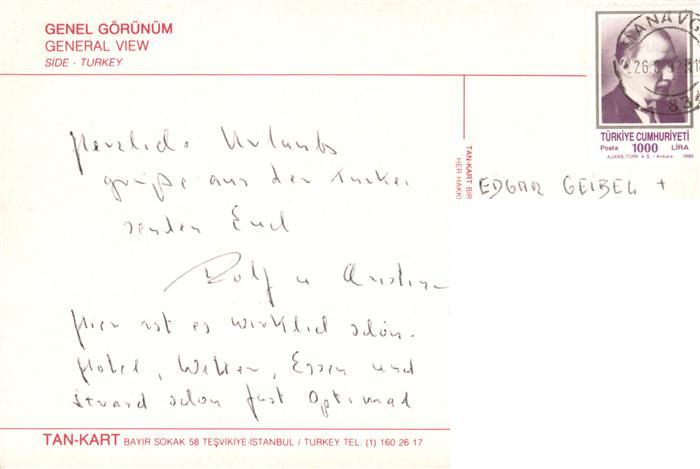 GENEL GÖRÜNÜM
GENERAL VIEW
SIDE - TURKEY
MANAVG
26.6
TÜRKİYE CUMHURİYETİ
Posta 1000 LİRA
AJANS-TÜRK A.Ş. / Ankara 1990
TAN-KART BİR
HER HAKKI
EDGAR GEIBEL +
Herzliche Urlaubs
grüße aus der Türkei
senden Euch
Rolf u
Hier ist es wirklich schön.
Hotel, Wetter, Essen und
Strand schon fast optimal
TAN-KART BAYIR SOKAK 58 TEŞVİKİYE-İSTANBUL / TURKEY TEL: (1) 160 26 17